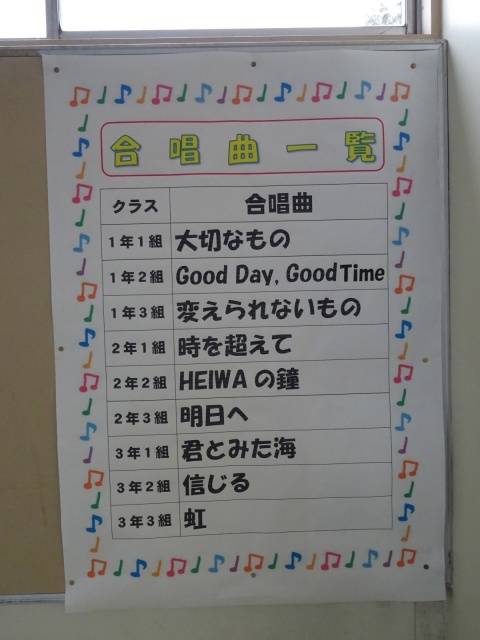 合唱曲一覧
クラス 合唱曲
1年1組 大切なもの
1年2組 Good Day, Good Time
1年3組 変えられないもの
2年1組 時を超えて
2年2組 HEIWAの鐘
2年3組 明日へ
3年1組 君とみた海
3年2組 信じる
3年3組 虹